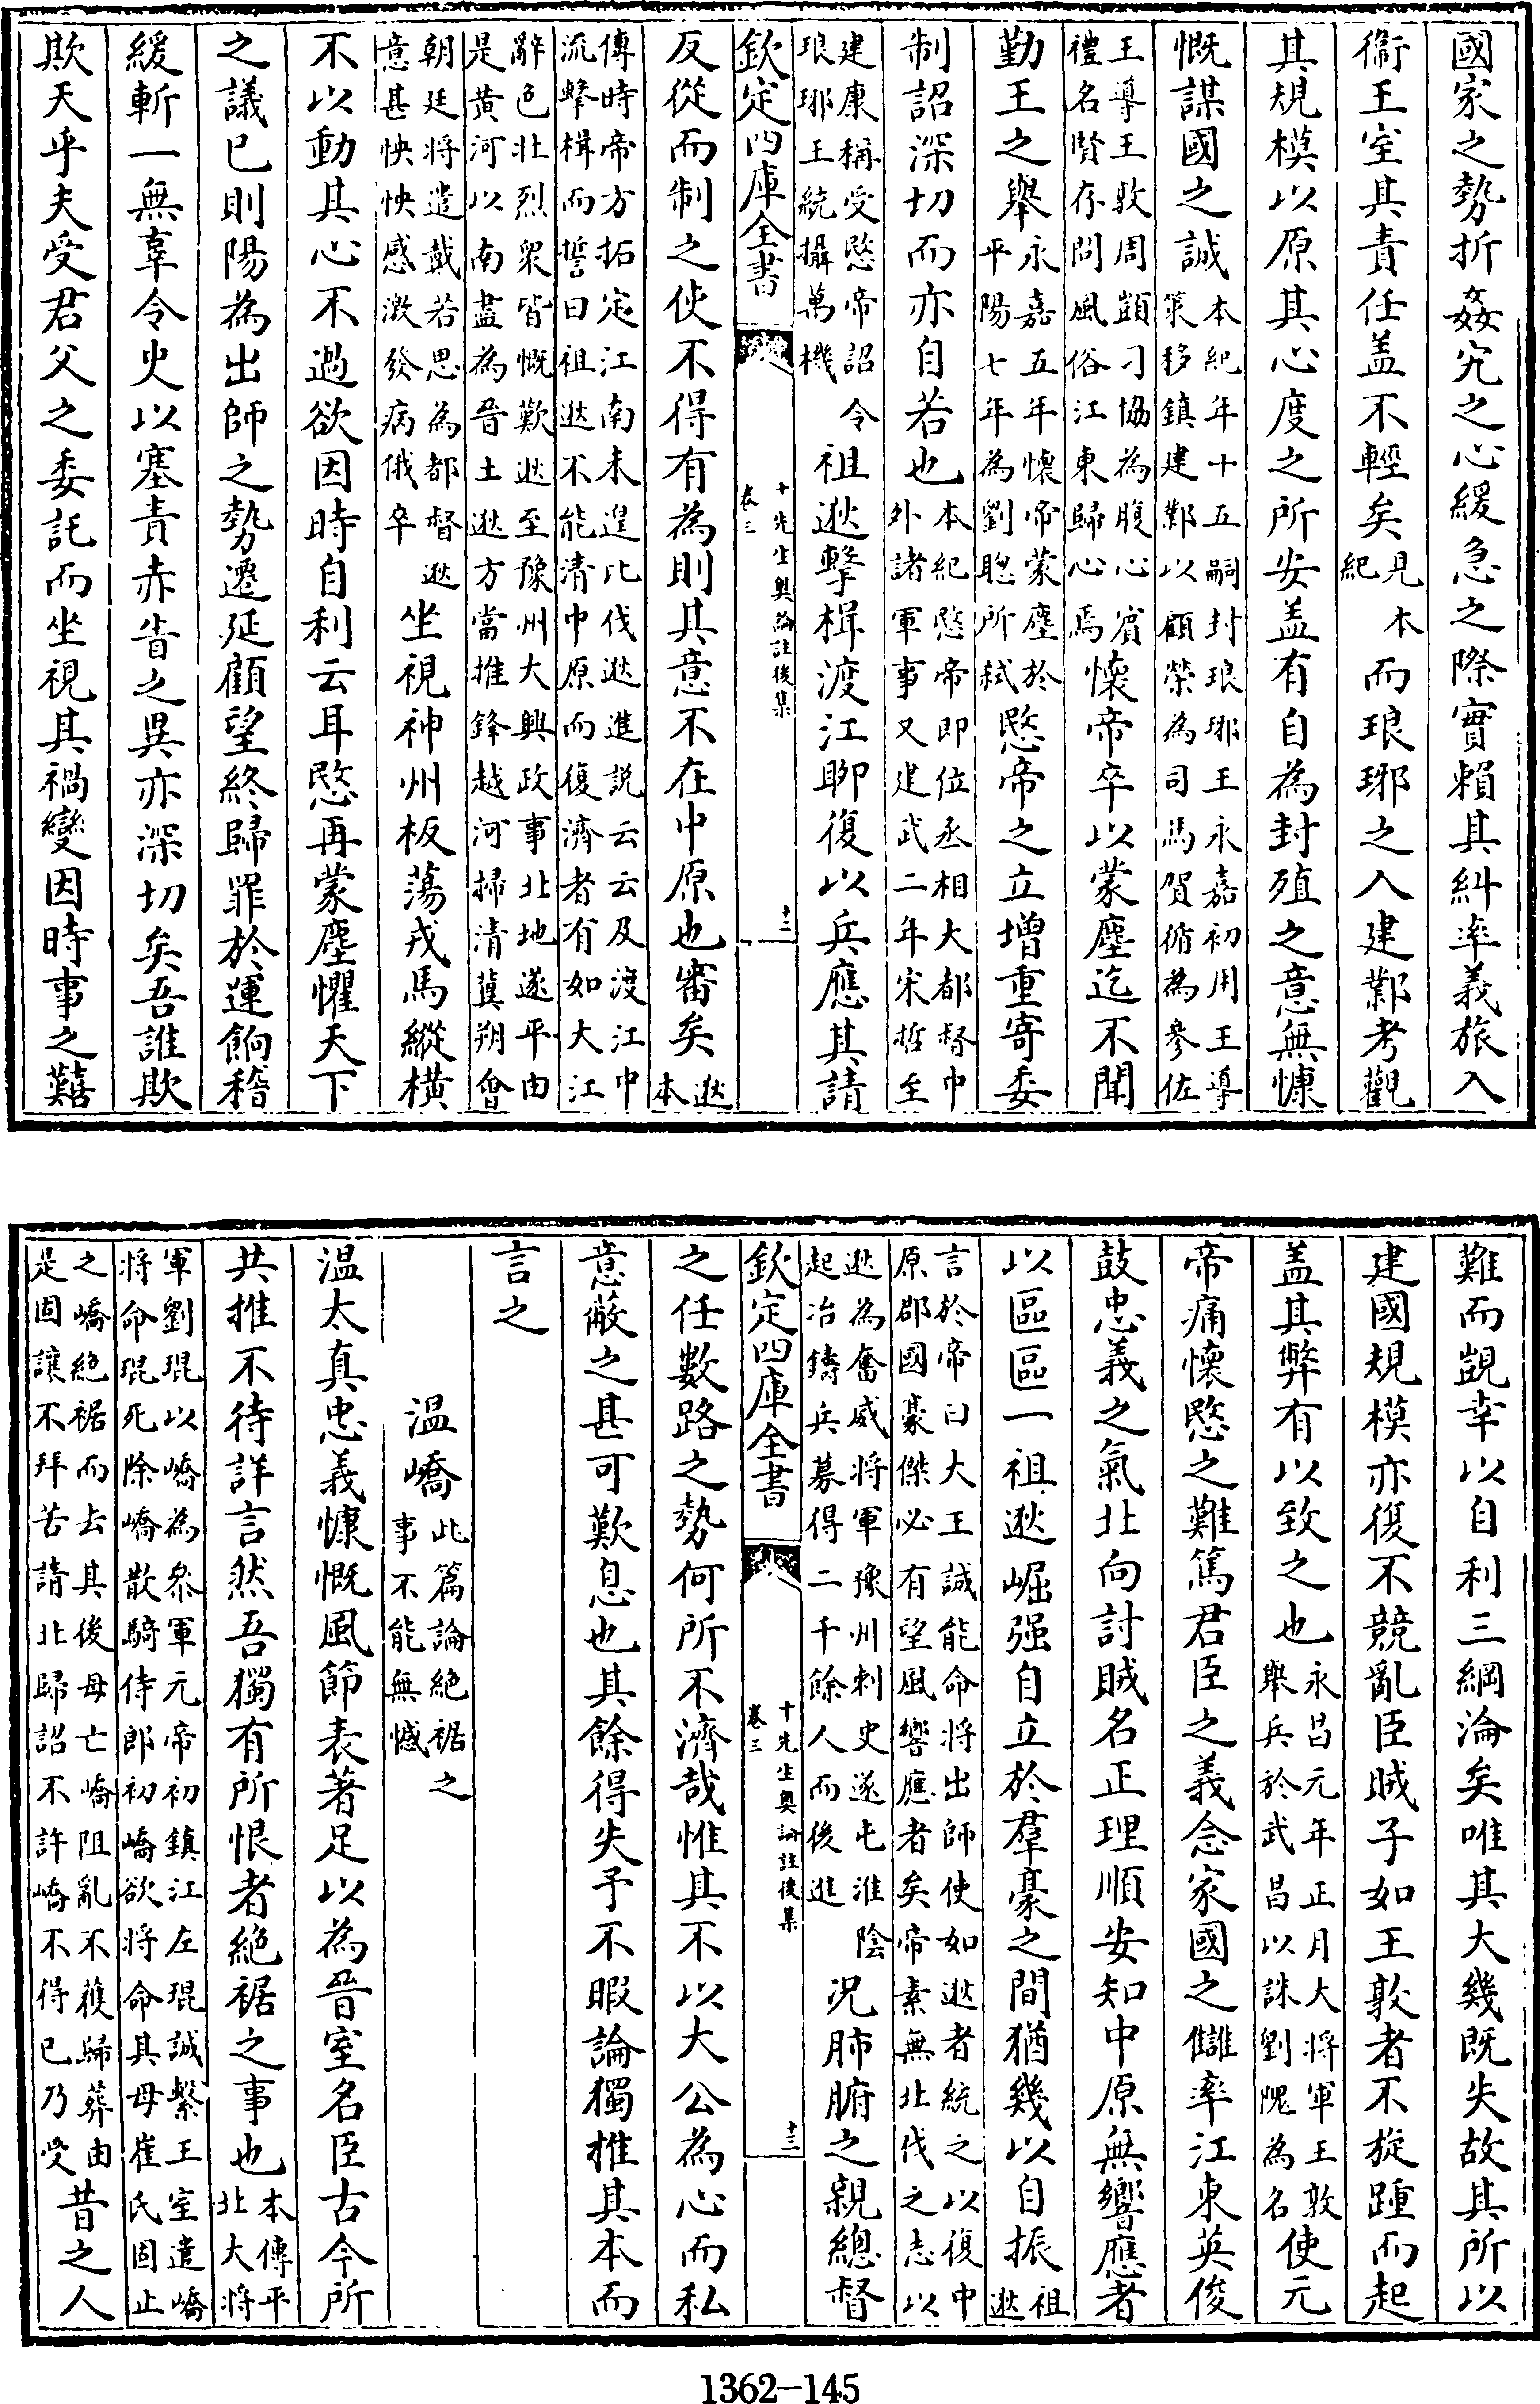 國家之勢折姦宄之心緩急之際實賴其糾率義旅入
衞王室其責任盖不輕矣見本紀而琅琊之入建鄴考觀
其規模以原其心度之所安盖有自為封殖之意無慷
慨謀國之誠本紀年十五嗣封琅琊王永嘉初用王導策移鎮建鄴以顧榮為司馬賀循為參佐
王導王敦周顗刁協為腹心賓禮名賢存問風俗江東歸心焉懷帝卒以蒙塵迄不聞
勤王之舉永嘉五年懷帝蒙塵於平陽七年為劉聰所弑愍帝之立增重寄委
制詔深切而亦自若也本紀愍帝即位丞相大都督中外諸軍事又建武二年宋哲至
建康稱受愍帝詔令琅琊王統攝萬機祖逖擊楫渡江聊復以兵應其請
欽定四庫全書 十先生奧論註後集 卷三 十二
反從而制之使不得有為則其意不在中原也審矣逖本
傳時帝方拓定江南未遑北伐逖進説云云及渡江中流擊楫而誓曰祖逖不能清中原而復濟者有如大江
辭色壯烈衆皆慨歎逖至豫州大興政事北地遂平由是黄河以南盡為晉土逖方當推鋒越河掃清冀朔會
朝廷將遣戴若思為都督逖意甚怏怏感激發病俄卒坐視神州板蕩戎馬縱横
不以動其心不過欲因時自利云耳愍再蒙塵懼天下
之議已則陽為出師之勢遷延顧望終歸罪於運餉稽
緩斬一無辜令史以塞責赤眚之異亦深切矣吾誰欺
欺天乎夫受君父之委託而坐視其禍變因時事之囏
難而覬幸以自利三綱淪矣唯其大幾既失故其所以
建國規模亦復不競亂臣賊子如王敦者不旋踵而起
盖其弊有以致之也永昌元年正月大將軍王敦舉兵於武昌以誅劉隗為名使元
帝痛懷愍之難篤君臣之義念家國之讎率江東英俊
鼓忠義之氣北向討賊名正理順安知中原無響應者
以區區一祖逖崛强自立於羣豪之間猶幾以自振祖逖
言於帝曰大王誠能命將出師使如逖者統之以復中原郡國豪傑必有望風響應者矣帝素無北伐之志以
逖為奮威將軍豫州刺史遂屯淮陰起冶鑄兵募得二千餘人而後進況肺腑之親總督
欽定四庫全書 十先生奧論註後集 卷三 十三
之任數路之勢何所不濟哉惟其不以大公為心而私
意蔽之甚可歎息也其餘得失予不暇論獨推其本而
言之
温嶠此篇論絕裾之事不能無憾
温太真忠義慷慨風節表著足以為晉室名臣古今所
共推不待詳言然吾獨有所恨者絕裾之事也本傳平北大將
軍劉琨以嶠為叅軍元帝初鎮江左琨誠繫王室遣嶠將命琨死除嶠散騎侍郎初嶠欲將命其母崔氏固止
之嶠絕裾而去其後母亡嶠阻亂不獲歸葬由是固讓不拜苦請北歸詔不許嶠不得已乃受昔之人
1362-145